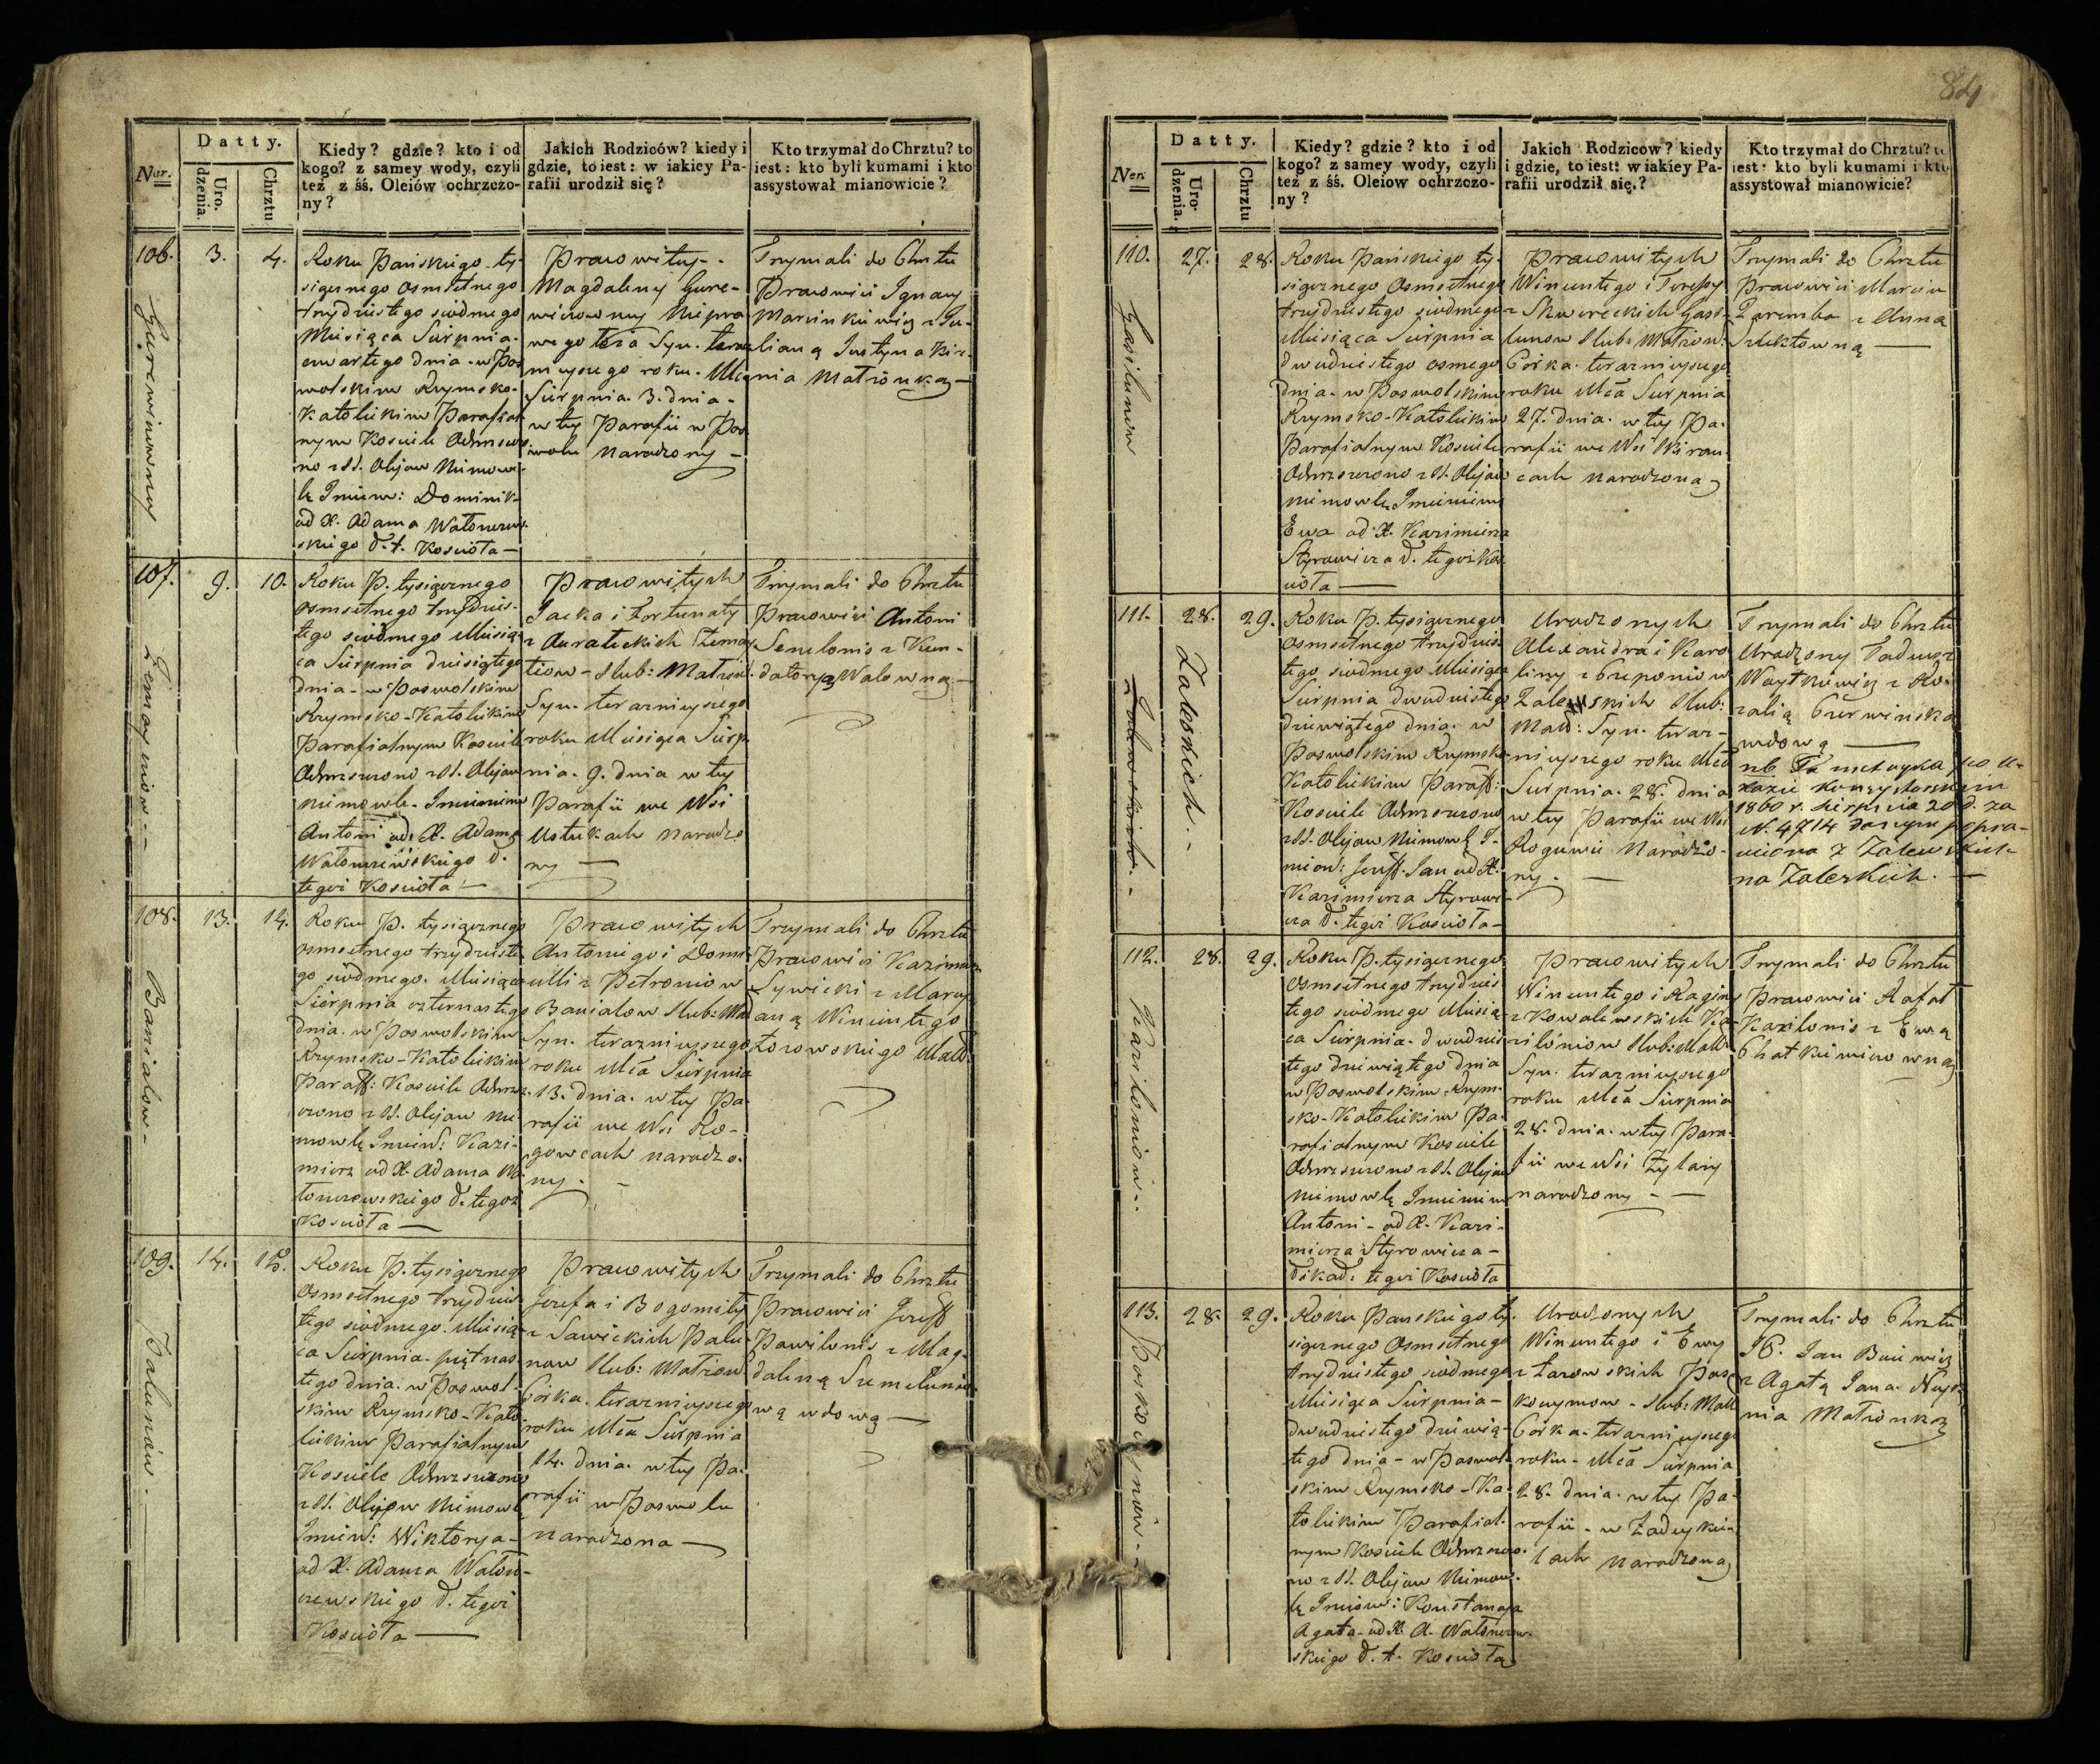 84
Datty.
Nor.
Uro-
dzenia.
Chrztu
Kiedy? gdzie? kto i od
kogo? z samey wody, czyli
też z śś. Oleiów ochrzczo-
ny?
Jakich Rodziców? kiedy i
gdzie, to iest: w iakiey Pa-
rafii urodził się?
Kto trzymał do Chrztu? to
iest: kto byli kumami i kto
assystował mianowicie?
106.
3.
4.
Roku Pańskiego ty-
siącznego osmsetnego
trzydziestego siódmego
Miesiąca Sierpnia
czwartego dnia - w Pos
wolskim Rzymsko-
Katolickim Parafial
nym Kosciele Ochrzczo
no z SS. Olejow Niemow-
lę Imiem: Dominik
od X. Adama Wałoncew-
skiego d. t. Koscioła —
Prawowitey
Magdaleny Gure-
wiczowny Niepra
wego łoża Syn. teraz
nieyszego roku. Mca
Sierpnia. 3. dnia -
w tey Parafii w Pos
wolu narodzony —
Trzymali do Chrztu
Prawowici Ignacy
Marcinkiewicz z Ju-
lianą Justyna Kie-
nia Małżonką —
107.
9.
10.
Roku P. tysiącznego
osmsetnego trzydzies-
tego siódmego Miesią-
ca Sierpnia dziesiątego
dnia - w Poswolskim
Rzymsko-Katolickim
Parafialnym Kosciele
Ochrzczono z SS. Olejow
niemowle - Imieniem
Antoni od X. Adama
Wałoncewskiego d.
tegoż Koscioła —
Prawowitych
Jacka i Fortunaty
tiow - slub: Małżon.
Syn. teraznieyszego
roku Miesiąca Sierp
nia. 9. dnia w tey
Parafii we Wsi
Ustukach narodzo
ny —
Trzymali do Chrztu
Prawowici Antoni
108.
13.
14.
Banialow -
Roku P. tysiącznego
osmsetnego trzydzieste
go siódmego. Miesiąca
Sierpnia czternastego
dnia. w Poswolskim
Rzymsko-Katolickim
Paraff: Kosciele Ochrz-
czono z SS. Olejow nie
mowlę Imieni: Kazi-
mierz od X. Adama Wa
łoncewskiego d. tegoż
Kosciola —
Prawowitych
Antoniego i Domi-
celli z Petroniow
Banialow Slub: Mał
Syn. teraznieyszego
roku Mca Sierpnia
13. dnia. w tey Pa-
rafii we Wsi Ro-
gowcach narodzo-
ny. -
Trzymali do Chrztu
Prawowici Kazimierz
Sywicki z Mary-
aną Wincentego
109.
14.
15.
Palunów.
Roku P. tysiącznego
osmsetnego trzydzies
tego siódmego. Miesią-
ca Sierpnia - piętnas-
tego dnia. w Poswol-
skim Rzymsko-Kato
lickim Parafialnym
Kosciele Ochrzczono
z SS. Olejow Niemowl
Imieni: Wiktorya -
od X. Adama Wałon-
cewskiego d. tegoż
Kosciola —
Prawowitych
Jozefa i Bogomiły
z Sawickich Palu-
now Slub: Małżon
Córka. terazniejszego
roku Mca Sierpnia
14. dnia. w tey Pa-
rafii w Poswolu
narodzona —
Trzymali do Chrztu
Prawowici Jozeff
Pawilonis z Mag-
daleną Szemeluni-
wą wdową —
Datty.
Ner.
Uro-
dzenia.
Chrztu
Kiedy? gdzie? kto i od
kogo? z samey wody, czyli
też z śś. Oleiow ochrzczo-
ny?
Jakich Rodzicow? kiedy
i gdzie, to iest: w iakiey Pa-
rafii urodził się?
Kto trzymał do Chrztu? to
iest: kto byli kumami i kto
assystował mianowicie?
110.
27.
28.
Roku Pańskiego ty-
siącznego Osmsetnego
trzydziestego siódmego
Miesiąca Sierpnia
dwudziestego osmego
dnia - w Poswolskim
Rzymsko-Katolickim
Parafialnym Kosciele
Ochrzczono z SS. Olejow
niemowle Imieniem
Ewa od X. Kazimierza
Styrowicza d. tegoż Kos-
cioła —
Prawowitych
Wincentego i Teressy
z Skwereckich Gasi-
lunow Slub: Małżon:
Córka. terazniejszego
roku Mca Sierpnia
27. dnia. w tey Pa-
rafii we Wsi
narodzona
Trzymali do Chrztu
Prawowici Marcin
Zaremba z Anną
111.
28.
29.
Zaleskich. -
Roku P. tysiącznego
osmsetnego trzydzies
tego siódmego Miesiąca
Sierpnia dwudziestego
dziewiątego dnia. w
Poswolskim Rzymsko-
Katolickim Paraff:
Kosciele Ochrzczono
z SS. Olejow Niemowlę I-
mion: Jozeff. Jan od X.
Kazimierza Styrowi-
cza d. tegoż Kosciola —
Urodzonych
Alexandra i Karo
liny z Czeponiow
Zaleskich Slub:
Małż: Syn. teraz-
nieyszego roku Mca
Sierpnia. 28. dnia
w tey Parafii we Wsi
Roguwii Narodzo-
ny. —
Trzymali do Chrztu
Urodzony Tadeusz
Woytkiewicz z Ro-
zalią Czerwińską
wdową —
nb Ta metryka po u-
kazie Konsystorskim
1860 r. sierpnia 20 d. za
N. 4714 popra-
wiona z Zalewskich
na Zaleskich. —
112.
28.
29.
Kaziloniow. -
Roku P. tysiącznego
Osmsetnego trzydzies
tego siódmego Miesią-
ca Sierpnia. dwudzies
tego dziewiątego dnia
w Poswolskim Rzym-
sko-Katolickim Pa-
rafialnym Kosciele
Ochrzczono z SS. Olejow
niemowlę Imieniem
Antoni - od X. Kazi-
mierza Styrowicza -
tegoż Kosciola
Prawowitych
Wincentego i Raginy
z Kowalewskich Ka-
ziloniow Slub: Małż:
Syn. terazniejszego
roku Mca Sierpnia
28. dnia. w tey Para-
fii we Wsi Żylany
narodzony - —
Trzymali do Chrztu
Prawowici Rafał
Kazilonis z Ewą
Chatkiewiczowną
113.
28.
29.
Roku Panskiego ty-
siącznego Osmsetnego
trzydziestego siódmego
Miesiąca Sierpnia -
dwudziestego dziewią-
tego dnia - w Poswol-
skim Rzymsko-Ka-
tolickim Parafial-
nym Kosciele Ochrzczo-
no z SS. Olejow Niemow-
lę Imion: Konstancya
Agata - od X. A. Wałoncew-
skiego d. t. Kosciola
Urodzonych
Wincentego i Ewy
z Łarowskich
Slub: Małż
Córka - terazniejszego
roku - Mca Sierpnia
28. dnia. w tey Pa-
rafii - w
narodzona
Trzymali do Chrztu
z Agatą Jana
Małżonką